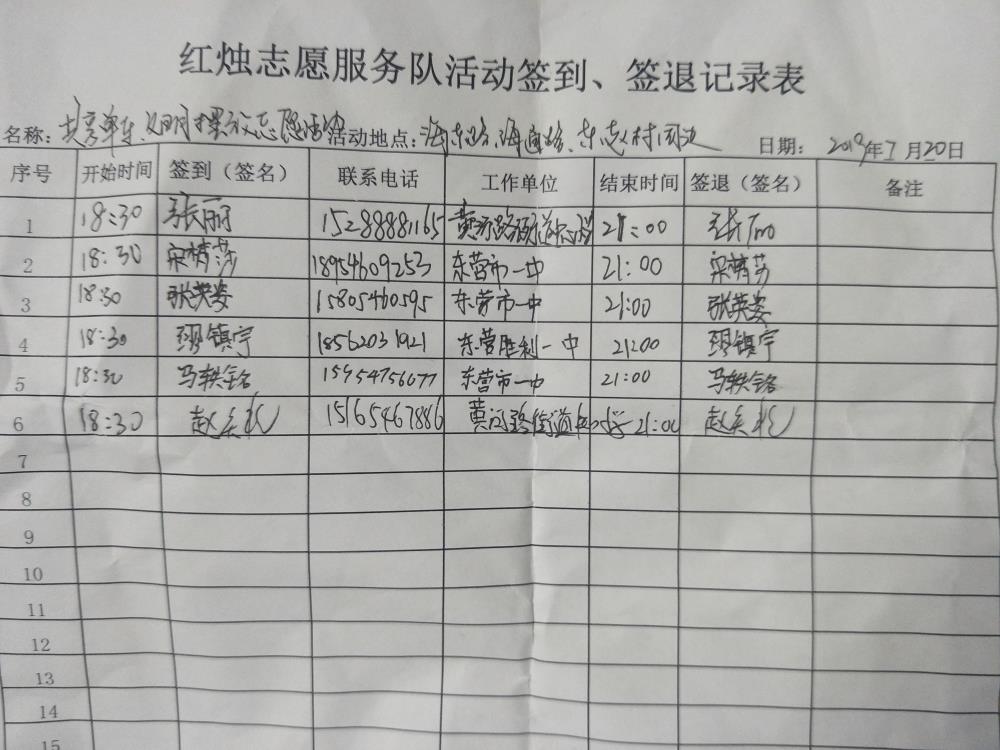 红烛志愿服务队活动签到、签退记录表
名称：共享单车文明摆放志愿活动 活动地点：海 路、海通路、东赵村周边 日期：2019年7月20日
序号 开始时间 签到（签名） 联系电话 工作单位 结束时间 签退（签名） 备注
1 18:30 张丽 15288881165 黄河路街道 21:00 张丽
2 18:30 宋精莎 18954609253 东营市一中 21:00 宋精莎
3 18:30 张英姿 15805460595 东营市一中 21:00 张英姿
4 18:30 镇宇 18562031921 东营胜利一中 21:00 镇宇
5 18:30 马轶铭 15954756077 东营市一中 21:00 马轶铭
6 18:30 赵 礼 15165467886 黄河路街道 21:00 赵 礼
7
8
9
10
11
12
13
14
15